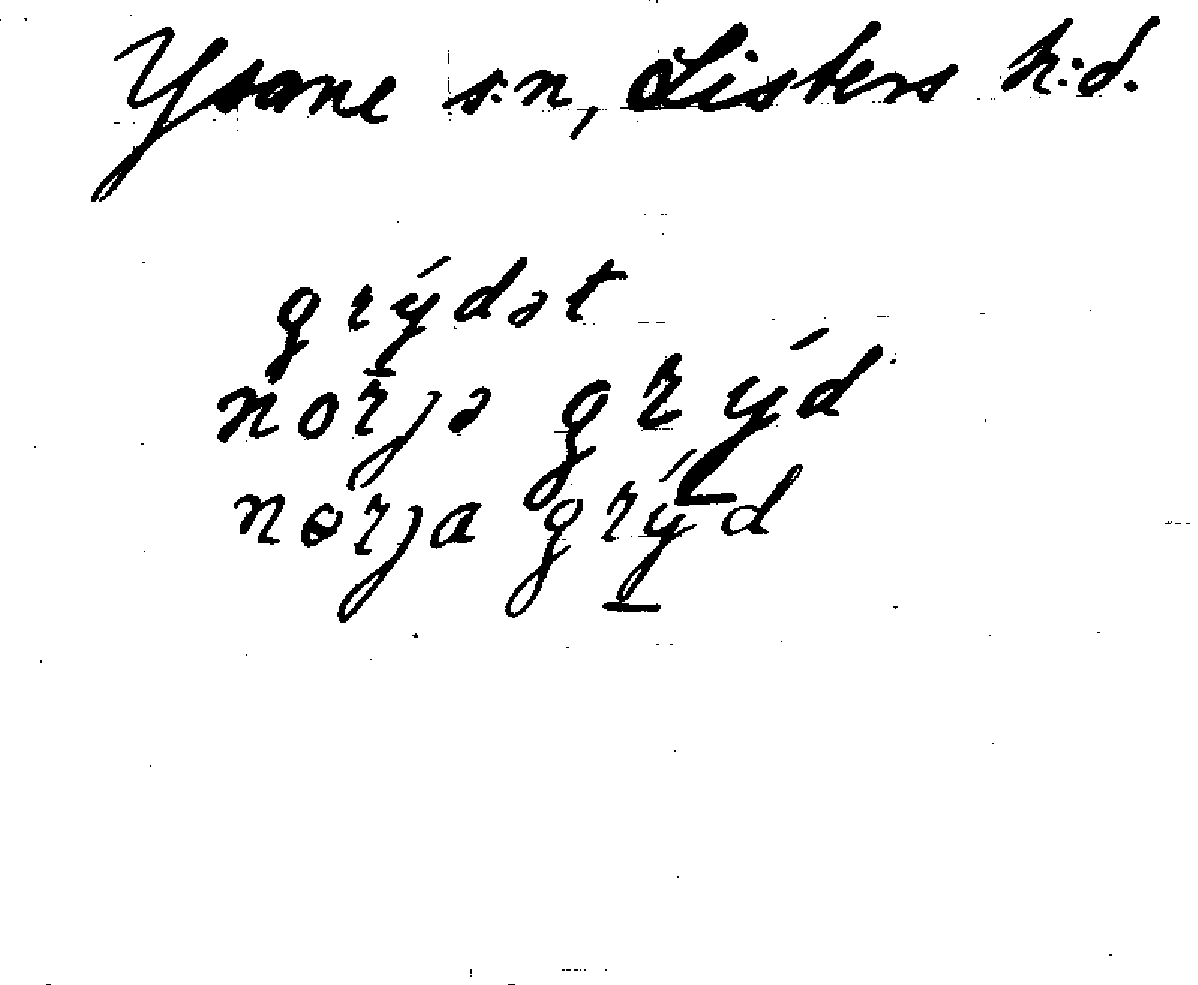 Ysane s:n, Listers h:d.
grýdət
norjə grýd
nørja grýd